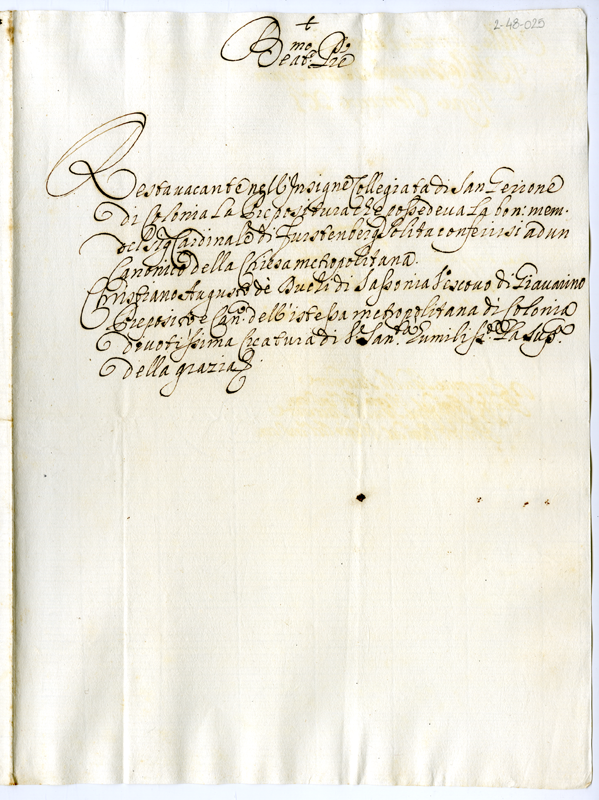 2-48-025
+
Beat.mo Pre
Resta vacante nell'Insigne Collegiata di San Gerione
di Colonia la Prepositura che possedeva la bon: mem.
del Sig. Cardinale di Furstenberg solita conferirsi ad un
Canonico della Chiesa metropolitana.
Christiano Augusto de Duchi di Sassonia Vescovo di Giavarino
Preposito e Can.co dell'istessa metropolitana di Colonia
divotissima Creatura di V. San.tà humiliss.te La Supp.ca
della grazia